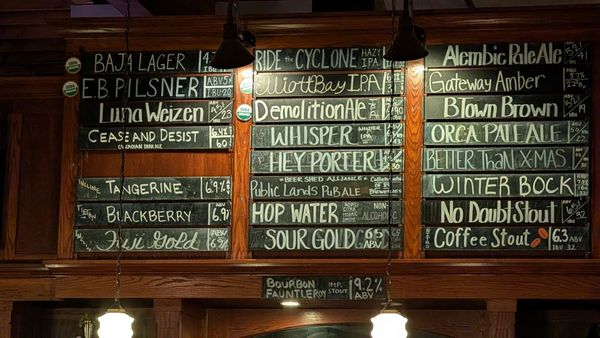 BAJA LAGER
EB PILSNER ABV5%
Luna Weizen
CEASE AND DESIST
CASCADIAN DARK ALE 60
TANGERINE 6.9%
BLACKBERRY 6.9%
Fuji Gold
RIDE THE CYCLONE HAZY IPA
Elliott Bay IPA
Demolition Ale
WHISPER IPA
HEY PORTER
BEER SHED ALLIANCE
Public Lands Pub Ale
HOP WATER NON-ALCOHOLIC
SOUR GOLD
Alembic Pale Ale
Gateway Amber
BTown Brown
ORCA PALE ALE
BETTER THAN X-MAS
WINTER BOCK
No Doubt Stout
Coffee Stout 6.3 ABV
IBU 32
BOURBON IMP. STOUT 19.2% ABV
FAUNTLEROY